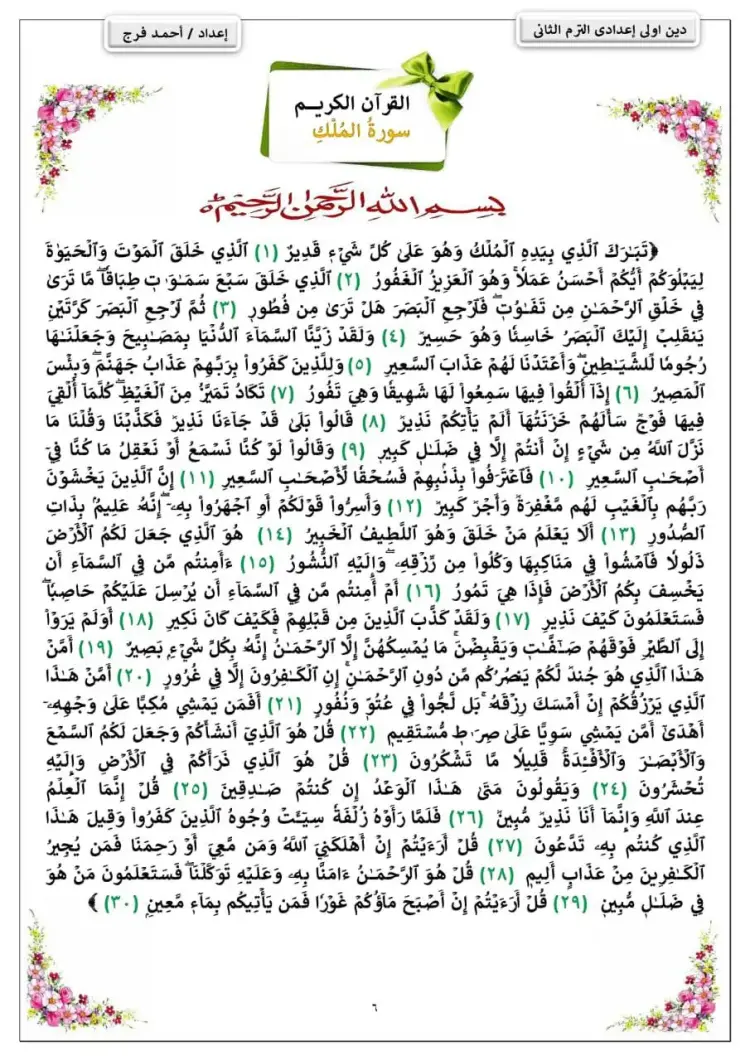 دين اولى إعدادى الترم الثانى
إعداد / أحمد فرج
القرآن الكريم
سورةُ المُلْكِ
بسم الله الرحمن الرحيم
﴿تَبَٰرَكَ ٱلَّذِي بِيَدِهِ ٱلۡمُلۡكُ وَهُوَ عَلَىٰ كُلِّ شَيۡءٖ قَدِيرٌ (١) ٱلَّذِي خَلَقَ ٱلۡمَوۡتَ وَٱلۡحَيَوٰةَ
لِيَبۡلُوَكُمۡ أَيُّكُمۡ أَحۡسَنُ عَمَلٗاۚ وَهُوَ ٱلۡعَزِيزُ ٱلۡغَفُورُ (٢) ٱلَّذِي خَلَقَ سَبۡعَ سَمَٰوَٰتٖ طِبَاقٗاۖ مَّا تَرَىٰ
فِي خَلۡقِ ٱلرَّحۡمَٰنِ مِن تَفَٰوُتٖۖ فَٱرۡجِعِ ٱلۡبَصَرَ هَلۡ تَرَىٰ مِن فُطُورٖ (٣) ثُمَّ ٱرۡجِعِ ٱلۡبَصَرَ كَرَّتَيۡنِ
يَنقَلِبۡ إِلَيۡكَ ٱلۡبَصَرُ خَاسِئٗا وَهُوَ حَسِيرٞ (٤) وَلَقَدۡ زَيَّنَّا ٱلسَّمَآءَ ٱلدُّنۡيَا بِمَصَٰبِيحَ وَجَعَلۡنَٰهَا
رُجُومٗا لِّلشَّيَٰطِينِۖ وَأَعۡتَدۡنَا لَهُمۡ عَذَابَ ٱلسَّعِيرِ (٥) وَلِلَّذِينَ كَفَرُواْ بِرَبِّهِمۡ عَذَابُ جَهَنَّمَۖ وَبِئۡسَ
ٱلۡمَصِيرُ (٦) إِذَآ أُلۡقُواْ فِيهَا سَمِعُواْ لَهَا شَهِيقٗا وَهِيَ تَفُورُ (٧) تَكَادُ تَمَيَّزُ مِنَ ٱلۡغَيۡظِۖ كُلَّمَآ أُلۡقِيَ
فِيهَا فَوۡجٞ سَأَلَهُمۡ خَزَنَتُهَآ أَلَمۡ يَأۡتِكُمۡ نَذِيرٞ (٨) قَالُواْ بَلَىٰ قَدۡ جَآءَنَا نَذِيرٞ فَكَذَّبۡنَا وَقُلۡنَا مَا
نَزَّلَ ٱللَّهُ مِن شَيۡءٍ إِنۡ أَنتُمۡ إِلَّا فِي ضَلَٰلٖ كَبِيرٖ (٩) وَقَالُواْ لَوۡ كُنَّا نَسۡمَعُ أَوۡ نَعۡقِلُ مَا كُنَّا فِيٓ
أَصۡحَٰبِ ٱلسَّعِيرِ (١٠) فَٱعۡتَرَفُواْ بِذَنۢبِهِمۡ فَسُحۡقٗا لِّأَصۡحَٰبِ ٱلسَّعِيرِ (١١) إِنَّ ٱلَّذِينَ يَخۡشَوۡنَ
رَبَّهُم بِٱلۡغَيۡبِ لَهُم مَّغۡفِرَةٞ وَأَجۡرٞ كَبِيرٞ (١٢) وَأَسِرُّواْ قَوۡلَكُمۡ أَوِ ٱجۡهَرُواْ بِهِۦٓۖ إِنَّهُۥ عَلِيمُۢ بِذَاتِ
ٱلصُّدُورِ (١٣) أَلَا يَعۡلَمُ مَنۡ خَلَقَ وَهُوَ ٱللَّطِيفُ ٱلۡخَبِيرُ (١٤) هُوَ ٱلَّذِي جَعَلَ لَكُمُ ٱلۡأَرۡضَ
ذَلُولٗا فَٱمۡشُواْ فِي مَنَاكِبِهَا وَكُلُواْ مِن رِّزۡقِهِۦۖ وَإِلَيۡهِ ٱلنُّشُورُ (١٥) ءَأَمِنتُم مَّن فِي ٱلسَّمَآءِ أَن
يَخۡسِفَ بِكُمُ ٱلۡأَرۡضَ فَإِذَا هِيَ تَمُورُ (١٦) أَمۡ أَمِنتُم مَّن فِي ٱلسَّمَآءِ أَن يُرۡسِلَ عَلَيۡكُمۡ حَاصِبٗاۖ
فَسَتَعۡلَمُونَ كَيۡفَ نَذِيرِ (١٧) وَلَقَدۡ كَذَّبَ ٱلَّذِينَ مِن قَبۡلِهِمۡ فَكَيۡفَ كَانَ نَكِيرِ (١٨) أَوَلَمۡ يَرَوۡاْ
إِلَى ٱلطَّيۡرِ فَوۡقَهُمۡ صَٰٓفَّٰتٖ وَيَقۡبِضۡنَۚ مَا يُمۡسِكُهُنَّ إِلَّا ٱلرَّحۡمَٰنُۚ إِنَّهُۥ بِكُلِّ شَيۡءِۭ بَصِيرٌ (١٩) أَمَّنۡ
هَٰذَا ٱلَّذِي هُوَ جُندٞ لَّكُمۡ يَنصُرُكُم مِّن دُونِ ٱلرَّحۡمَٰنِۚ إِنِ ٱلۡكَٰفِرُونَ إِلَّا فِي غُرُورٍ (٢٠) أَمَّنۡ هَٰذَا
ٱلَّذِي يَرۡزُقُكُمۡ إِنۡ أَمۡسَكَ رِزۡقَهُۥۚ بَل لَّجُّواْ فِي عُتُوّٖ وَنُفُورٍ (٢١) أَفَمَن يَمۡشِي مُكِبًّا عَلَىٰ وَجۡهِهِۦٓ
أَهۡدَىٰٓ أَمَّن يَمۡشِي سَوِيًّا عَلَىٰ صِرَٰطٖ مُّسۡتَقِيمٖ (٢٢) قُلۡ هُوَ ٱلَّذِيٓ أَنشَأَكُمۡ وَجَعَلَ لَكُمُ ٱلسَّمۡعَ
وَٱلۡأَبۡصَٰرَ وَٱلۡأَفۡـِٔدَةَۚ قَلِيلٗا مَّا تَشۡكُرُونَ (٢٣) قُلۡ هُوَ ٱلَّذِي ذَرَأَكُمۡ فِي ٱلۡأَرۡضِ وَإِلَيۡهِ
تُحۡشَرُونَ (٢٤) وَيَقُولُونَ مَتَىٰ هَٰذَا ٱلۡوَعۡدُ إِن كُنتُمۡ صَٰدِقِينَ (٢٥) قُلۡ إِنَّمَا ٱلۡعِلۡمُ
عِندَ ٱللَّهِ وَإِنَّمَآ أَنَا۠ نَذِيرٞ مُّبِينٞ (٢٦) فَلَمَّا رَأَوۡهُ زُلۡفَةٗ سِيٓـَٔتۡ وُجُوهُ ٱلَّذِينَ كَفَرُواْ وَقِيلَ هَٰذَا
ٱلَّذِي كُنتُم بِهِۦ تَدَّعُونَ (٢٧) قُلۡ أَرَءَيۡتُمۡ إِنۡ أَهۡلَكَنِيَ ٱللَّهُ وَمَن مَّعِيَ أَوۡ رَحِمَنَا فَمَن يُجِيرُ
ٱلۡكَٰفِرِينَ مِنۡ عَذَابٍ أَلِيمٖ (٢٨) قُلۡ هُوَ ٱلرَّحۡمَٰنُ ءَامَنَّا بِهِۦ وَعَلَيۡهِ تَوَكَّلۡنَاۖ فَسَتَعۡلَمُونَ مَنۡ هُوَ
فِي ضَلَٰلٖ مُّبِينٖ (٢٩) قُلۡ أَرَءَيۡتُمۡ إِنۡ أَصۡبَحَ مَآؤُكُمۡ غَوۡرٗا فَمَن يَأۡتِيكُم بِمَآءٖ مَّعِينِۭ (٣٠)﴾
٦